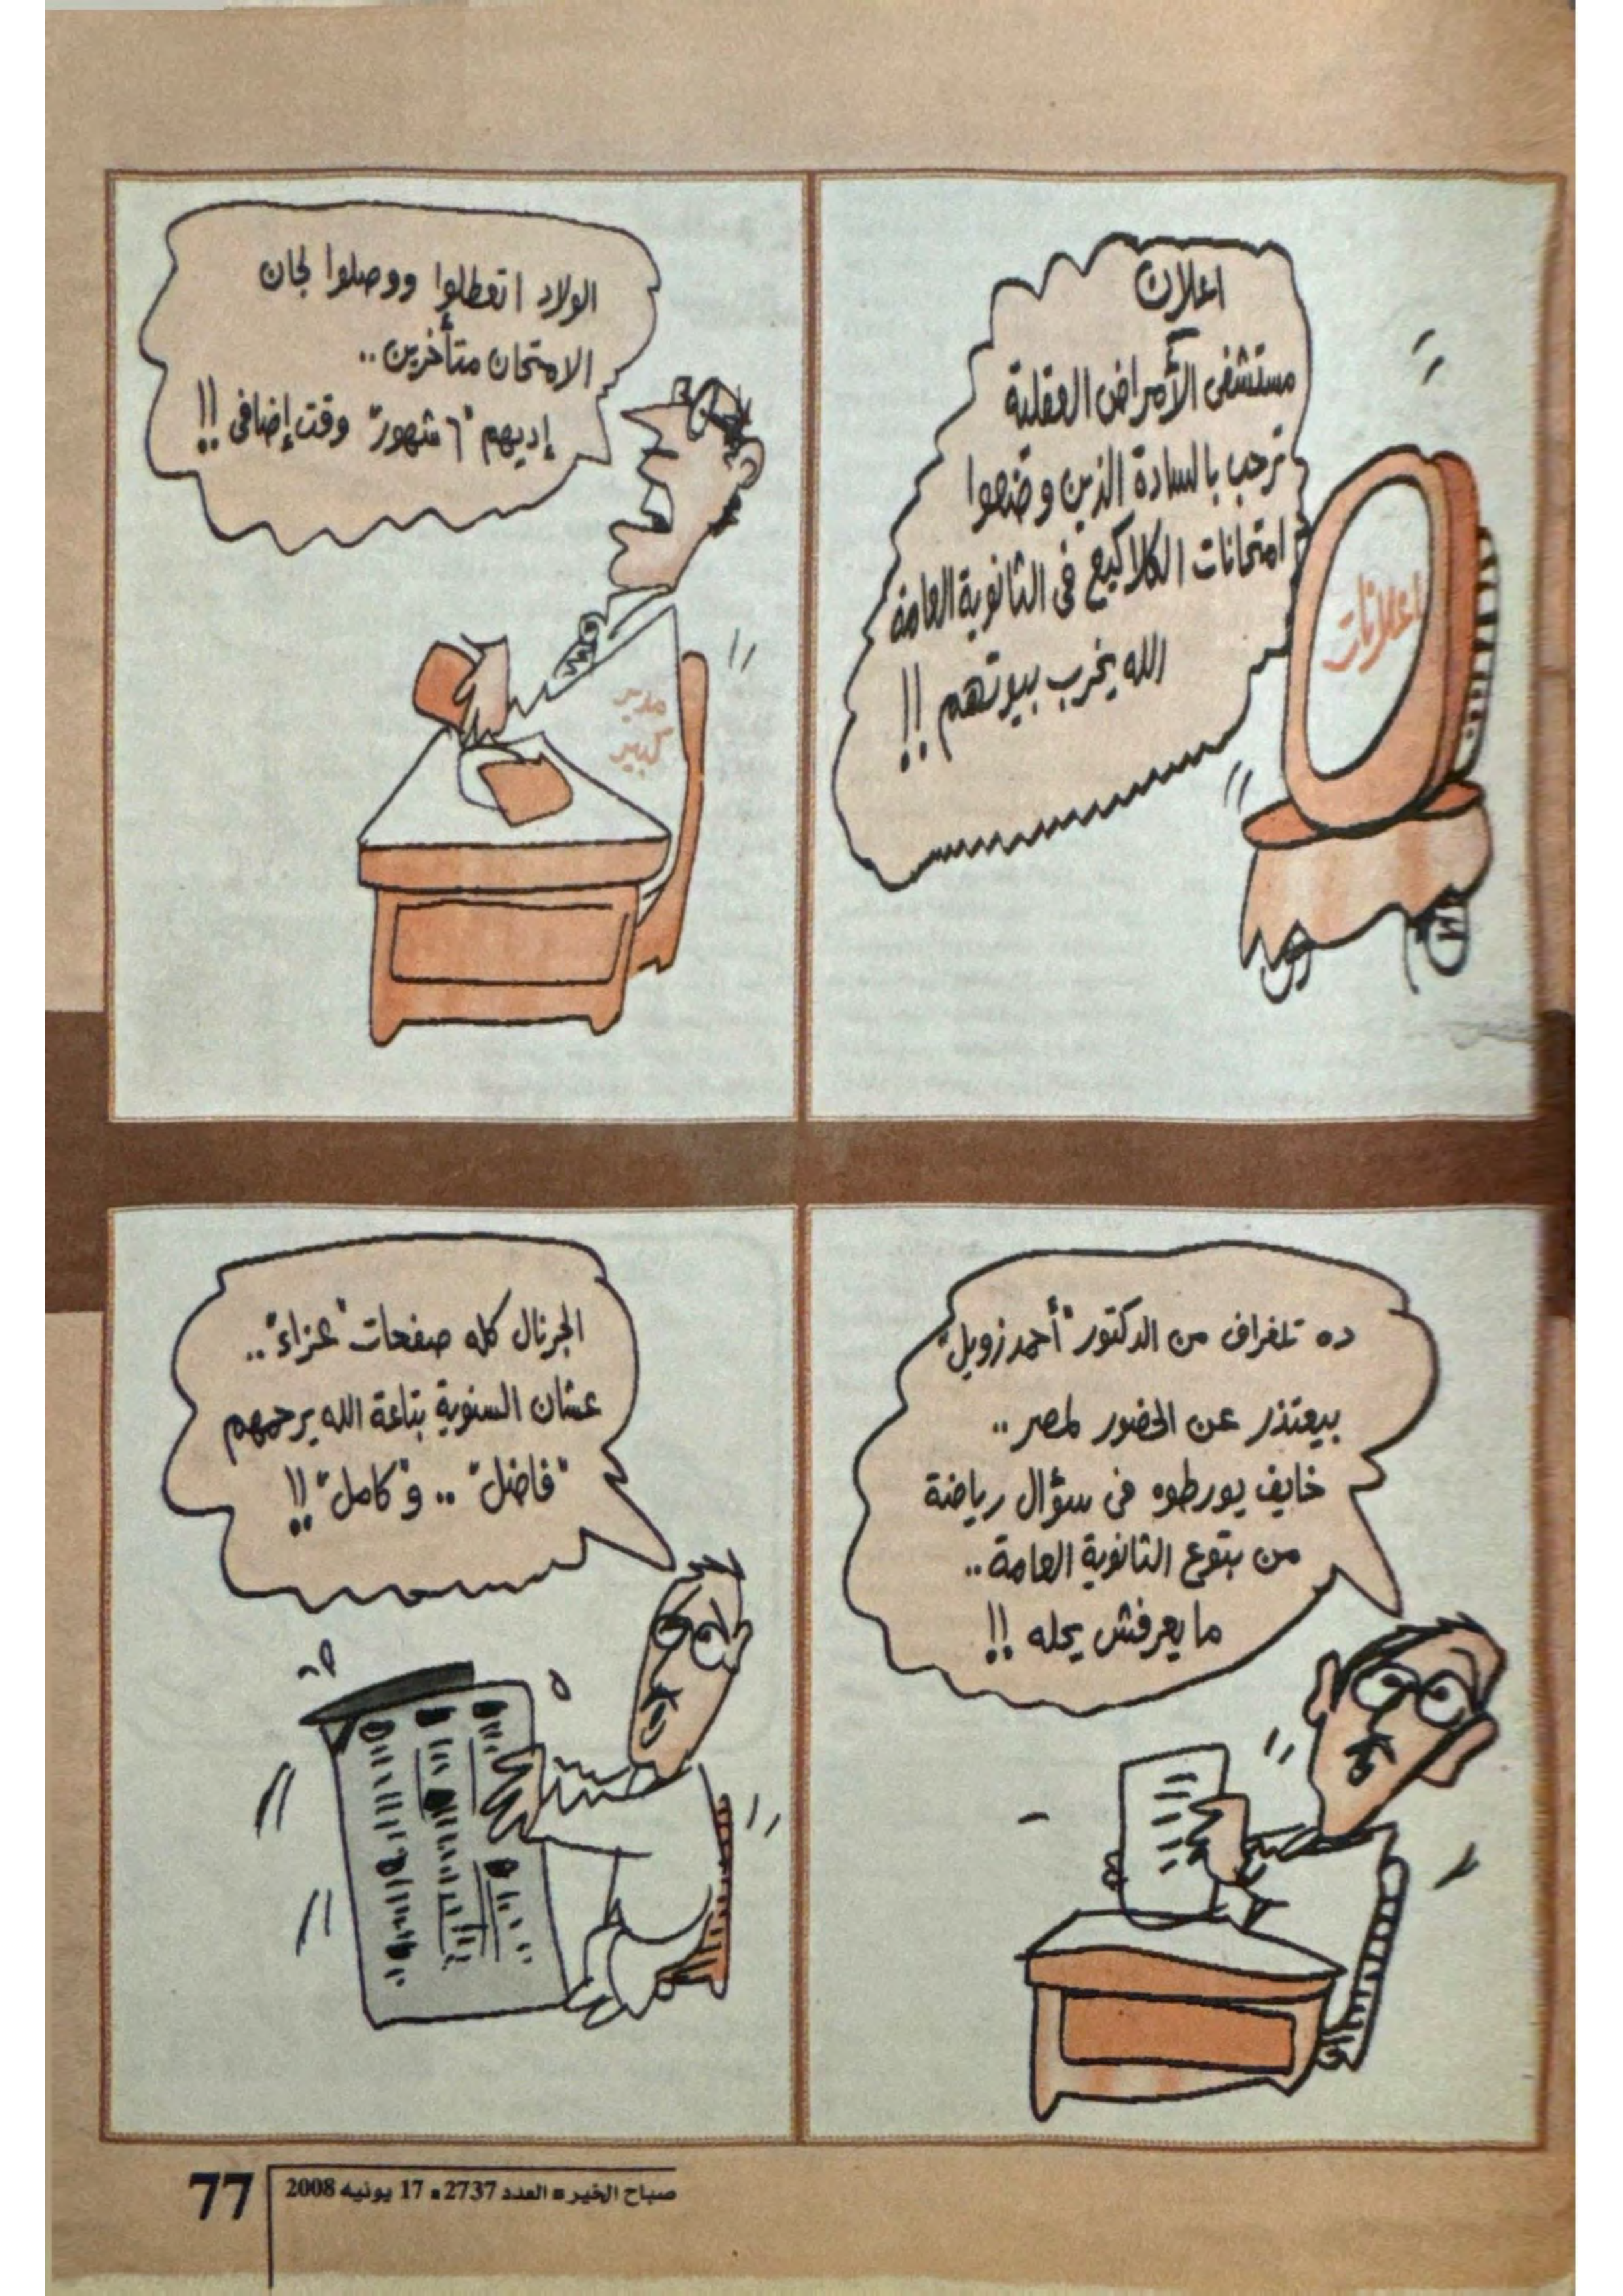 اعلان
مستشفى الأمراض العقلية
ترحب بالسادة الذين وضعوا
امتحانات الكلاكيع فى الثانوية العامة
الله يخرب بيوتهم !!
اعلانات
الولاد اتعطلوا ووصلوا لجان
الامتحان متأخرين ..
إديهم "٦ شهور" وقت إضافى !!
مدير
كبير
ده تلغراف من الدكتور "أحمد زويل"
بيعتذر عن الحضور لمصر ..
خايف يورطوه فى سؤال رياضة
من بتوع الثانوية العامة ..
ما يعرفش يحله !!
الجرنال كله صفحات "عزاء" ..
عشان السنوية بتاعة الله يرحمهم
"فاضل" .. و"كامل" !!
77
صباح الخير ■ العدد 2737 ■ 17 يونيه 2008